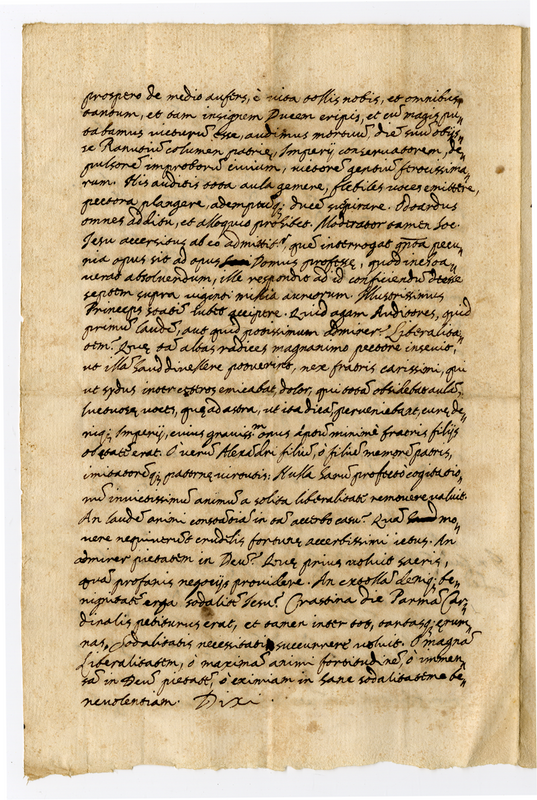 prospero de medio aufers, è vita tollis nobis, et omnibus
tantum, et tam insignem Ducem eripis, et cū magis pu„
tabamus victurū esse, audimus mortuū diē suū obijs„
se Ranutiū columen patrię, Imperij conservatorem, de„
pulsorē improborū civium, victorē gentiū ferocissima„
rum. His auditis tota aula gemere, flebiles voces emittere,
pectora plangere, ademptūq; ducē suspirare. Odoardus
omnes aditu, et alloquio prohibet. Moderator tamen Soc.
Iesu accersitus ab eo admittitr, quē interrogat quota pecu„
nia opus sit ad opus Domus professę, quod incoa„
verat absolvendum, ille respondit ad id conficiendū deesse
septem supra viginti millia aureorum. Illustrissimus
Princeps statī iubet accipere. Quid agam Auditores, quid
primū laudē, aut quid potissimum admirer? Liberalita„
tem? Quę tā altas radices magnanimo pectore insevit,
ut illā haud divellere potuerint, nex fratris carissimi, qui
ut sydus inter cęteros emicabat, dolor, qui totā obsidebat aulā,
luctuosę voces, quę ad astra, ut ita dicā perveniebant, curę de„
niq; Imperij, cuius gravissm onus aptū minimè fratris filijs
ętate erat. O verū Alexādri filiū, ò filiū memorē patris,
imitatorēq; paternę virtutis: Nulla harū profectò cogitatio„
nū invictissimū animū a solita liberalitate removere valuit.
An laudē animi constātiā in tā acerbo casu? Quā mo„
vere nequiverūt crudelis fortunę acerbissimi ictus. An
admirer pietatem in Deū? Quę prius voluit sacris,
quā profanis negocijs providere. An extollā deniq; be„
nignitatē erga sodalitē Iesu? Crastina die Parmā Car„
dinalis petiturus erat, et tamen inter tot, tantasq; ęrum„
nas, Sodalitatis necessitati succurrere voluit. O magnā
Liberalitatem, ò maximā animi fortitudinē, ò immen„
sā in Deū pietatē, ò eximiam in sane sodalitatem be„
nevolentiam. Dixi.